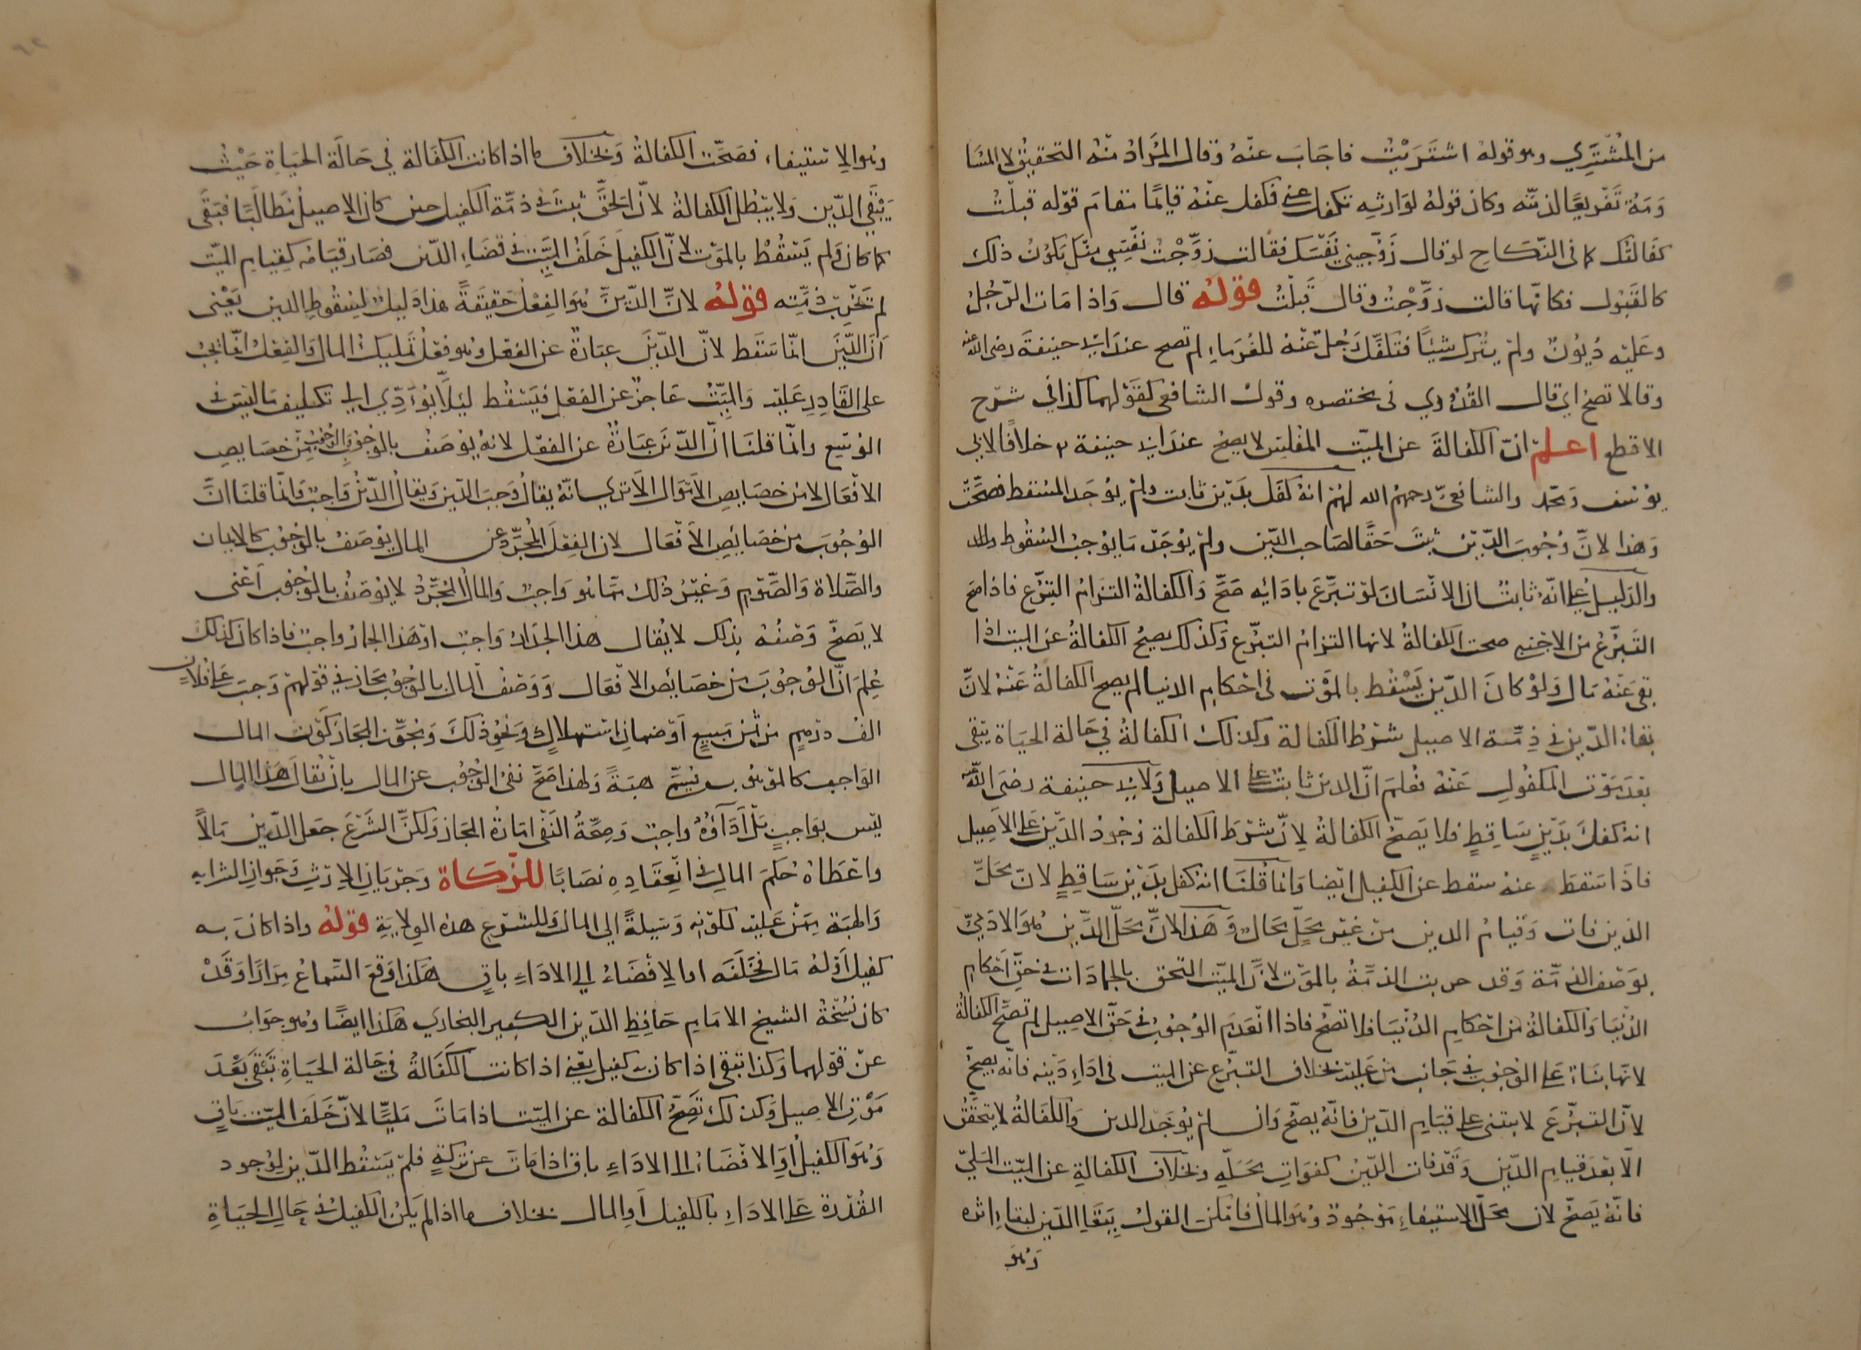 من المشتري وهو قوله اشتريت فاجاب عنه وقال المراد منه التحقيق لا المسا
ومة تفريغا لذمته وكان قوله لوارثه تكفل عني فكفل عنه قايما مقام قوله قبلت
كفالتك كما في النكاح لو قال زوجيني نفسك فقالت زوجت نفسي منك يكون ذلك
كالقبول فكانها قالت زوجت وقال قبلت قوله قال واذا مات الرجل
وعليه ديون ولم يترك شيئا فتكفل رجل عنه للغرماء لم تصح عند ابي حنيفة رضي الله عنه
وقالا تصح اي قال القدوري في مختصره وقول الشافعي كقولهما كذا في شرح
الاقطع اعلم ان الكفالة عن الميت المفلس لا يصح عند ابي حنيفة خلافا لابي
يوسف ومحمد والشافعي رحمهم الله لهم انه كفل بدين ثابت ولم يوجد المسقط فصحت
وهذا لان وجوب الدين ثبت حقا لصاحب الدين ولم يوجد ما يوجب السقوط
والدليل على انه ثابت ان الانسان لو تبرع بادايه صح والكفالة التزام التبرع فاذا صح
التبرع من الاجنبي صحت الكفالة لانها التزام التبرع وكذلك يصح الكفالة عن الميت اذا
بقي عنه مال ولو كان الدين يسقط بالموت في احكام الدنيا لم يصح الكفالة عنه لان
بقاء الدين في ذمة الاصيل شرط الكفالة وكذلك الكفالة في حالة الحياة يبقى
بعد موت المكفول عنه فعلم ان الدين ثابت على الاصيل ولابي حنيفة رضي الله عنه
انه كفل بدين ساقط فلا يصح الكفالة لان شرط الكفالة وجود الدين على الاصيل
فاذا سقط عنه سقط عن الكفيل ايضا وانما قلنا انه كفل بدين ساقط لان محل
الدين فات وقيام الدين من غير محل محال وهذا لان محل الدين هو الادمي
بوصف الذمة وقد خربت الذمة بالموت لان الميت التحق بالجمادات في حق احكام
الدنيا والكفالة من احكام الدنيا فلا تصح فاذا انعدم الوجوب في حق الاصيل لم تصح الكفالة
لانها بناء على الوجوب في جانب من عليه بخلاف التبرع عن الميت في اداء دينه فانه يصح
لان التبرع لا يبتنى على قيام الدين فانه يصح وان لم يوجد الدين والكفالة لا يتحقق
الا بعد قيام الدين وقد فات الدين كفوات محله وبخلاف الكفالة عن الميت الملي
فانه يصح لان محل الاستيفاء موجود وهو المال فامكن القول ببقاء الدين لبقاء اثره
وهو
وهو الاستيفاء فصحت الكفالة وبخلاف ما اذا كانت الكفالة في حالة الحياة حيث
يبقى الدين ولا يبطل الكفالة لان الحق ثبت في ذمة الكفيل حين كان الاصيل مطالبا فبقى
كما كان ولم يسقط بالموت لان الكفيل خلف الميت في قضاء الدين فصار قيامه كقيام الميت
لم تخرب ذمته قوله لان الدين هو الفعل حقيقة هذا دليل لسقوط الدين يعني
ان الدين انما سقط لان الدين عبارة عن الفعل وهو فعل تمليك المال والفعل انما يجب
على القادر عليه والميت عاجز عن الفعل فيسقط ليلا يؤدي الى تكليف ما ليس في
الوسع وانما قلنا ان الدين عبارة عن الفعل لانه يوصف بالوجوب والوجوب من خصايص
الافعال لا من خصايص الاموال الا ترى انه يقال وجب الدين ويقال الدين واجب وانما قلنا ان
الوجوب من خصايص الافعال لان الفعل المجرد عن المال يوصف بالوجوب كالايمان
والصلاة والصوم وغير ذلك مما هو واجب والمال المجرد لا يوصف بالوجوب اعني
لا يصح وصفه بذلك لا يقال هذا الجدار واجب او هذا الحمار واجب فاذا كان كذلك
علم ان الوجوب من خصايص الافعال ووصف المال بالوجوب مجاز في قولهم وجب على فلان
الف درهم من ثمن مبيع او ضمان استهلاك ونحو ذلك ومجوز المجاز كون المال
الواجب كالموهوب يسمى هبة ولهذا صح نفي الوجوب عن المال بان يقال هذا المال
ليس بواجب بل اداؤه واجب وصحة النفي امارة المجاز ولكن الشرع جعل الدين مالا
واعطاه حكم المال في انعقاده نصابا للزكاة وجريان الارث وجواز الشراء به
والهبة ممن عليه لكونه وسيلة الى المال وللشرع هذه الولاية قوله واذا كان به
كفيل او له مال فخلفه او الافضاء الى الاداء باق هكذا وقع السماع مرارا وقد
كان نسخة الشيخ الامام حافظ الدين الكبير البخاري هكذا ايضا وهو جواب
عن قولهما وكذا تبقى اذا كان به كفيل يعني اذا كانت الكفالة في حالة الحياة تبقى بعد
موت الاصيل وكذلك تصح الكفالة عن الميت اذا مات مليا لان خلف الميت باق
وهو الكفيل او الافضاء الى الاداء باق اذا مات عن تركة فلم يسقط الدين لوجود
القدرة على الاداء بالكفيل او المال بخلاف ما اذا لم يكن الكفيل في حال الحياة